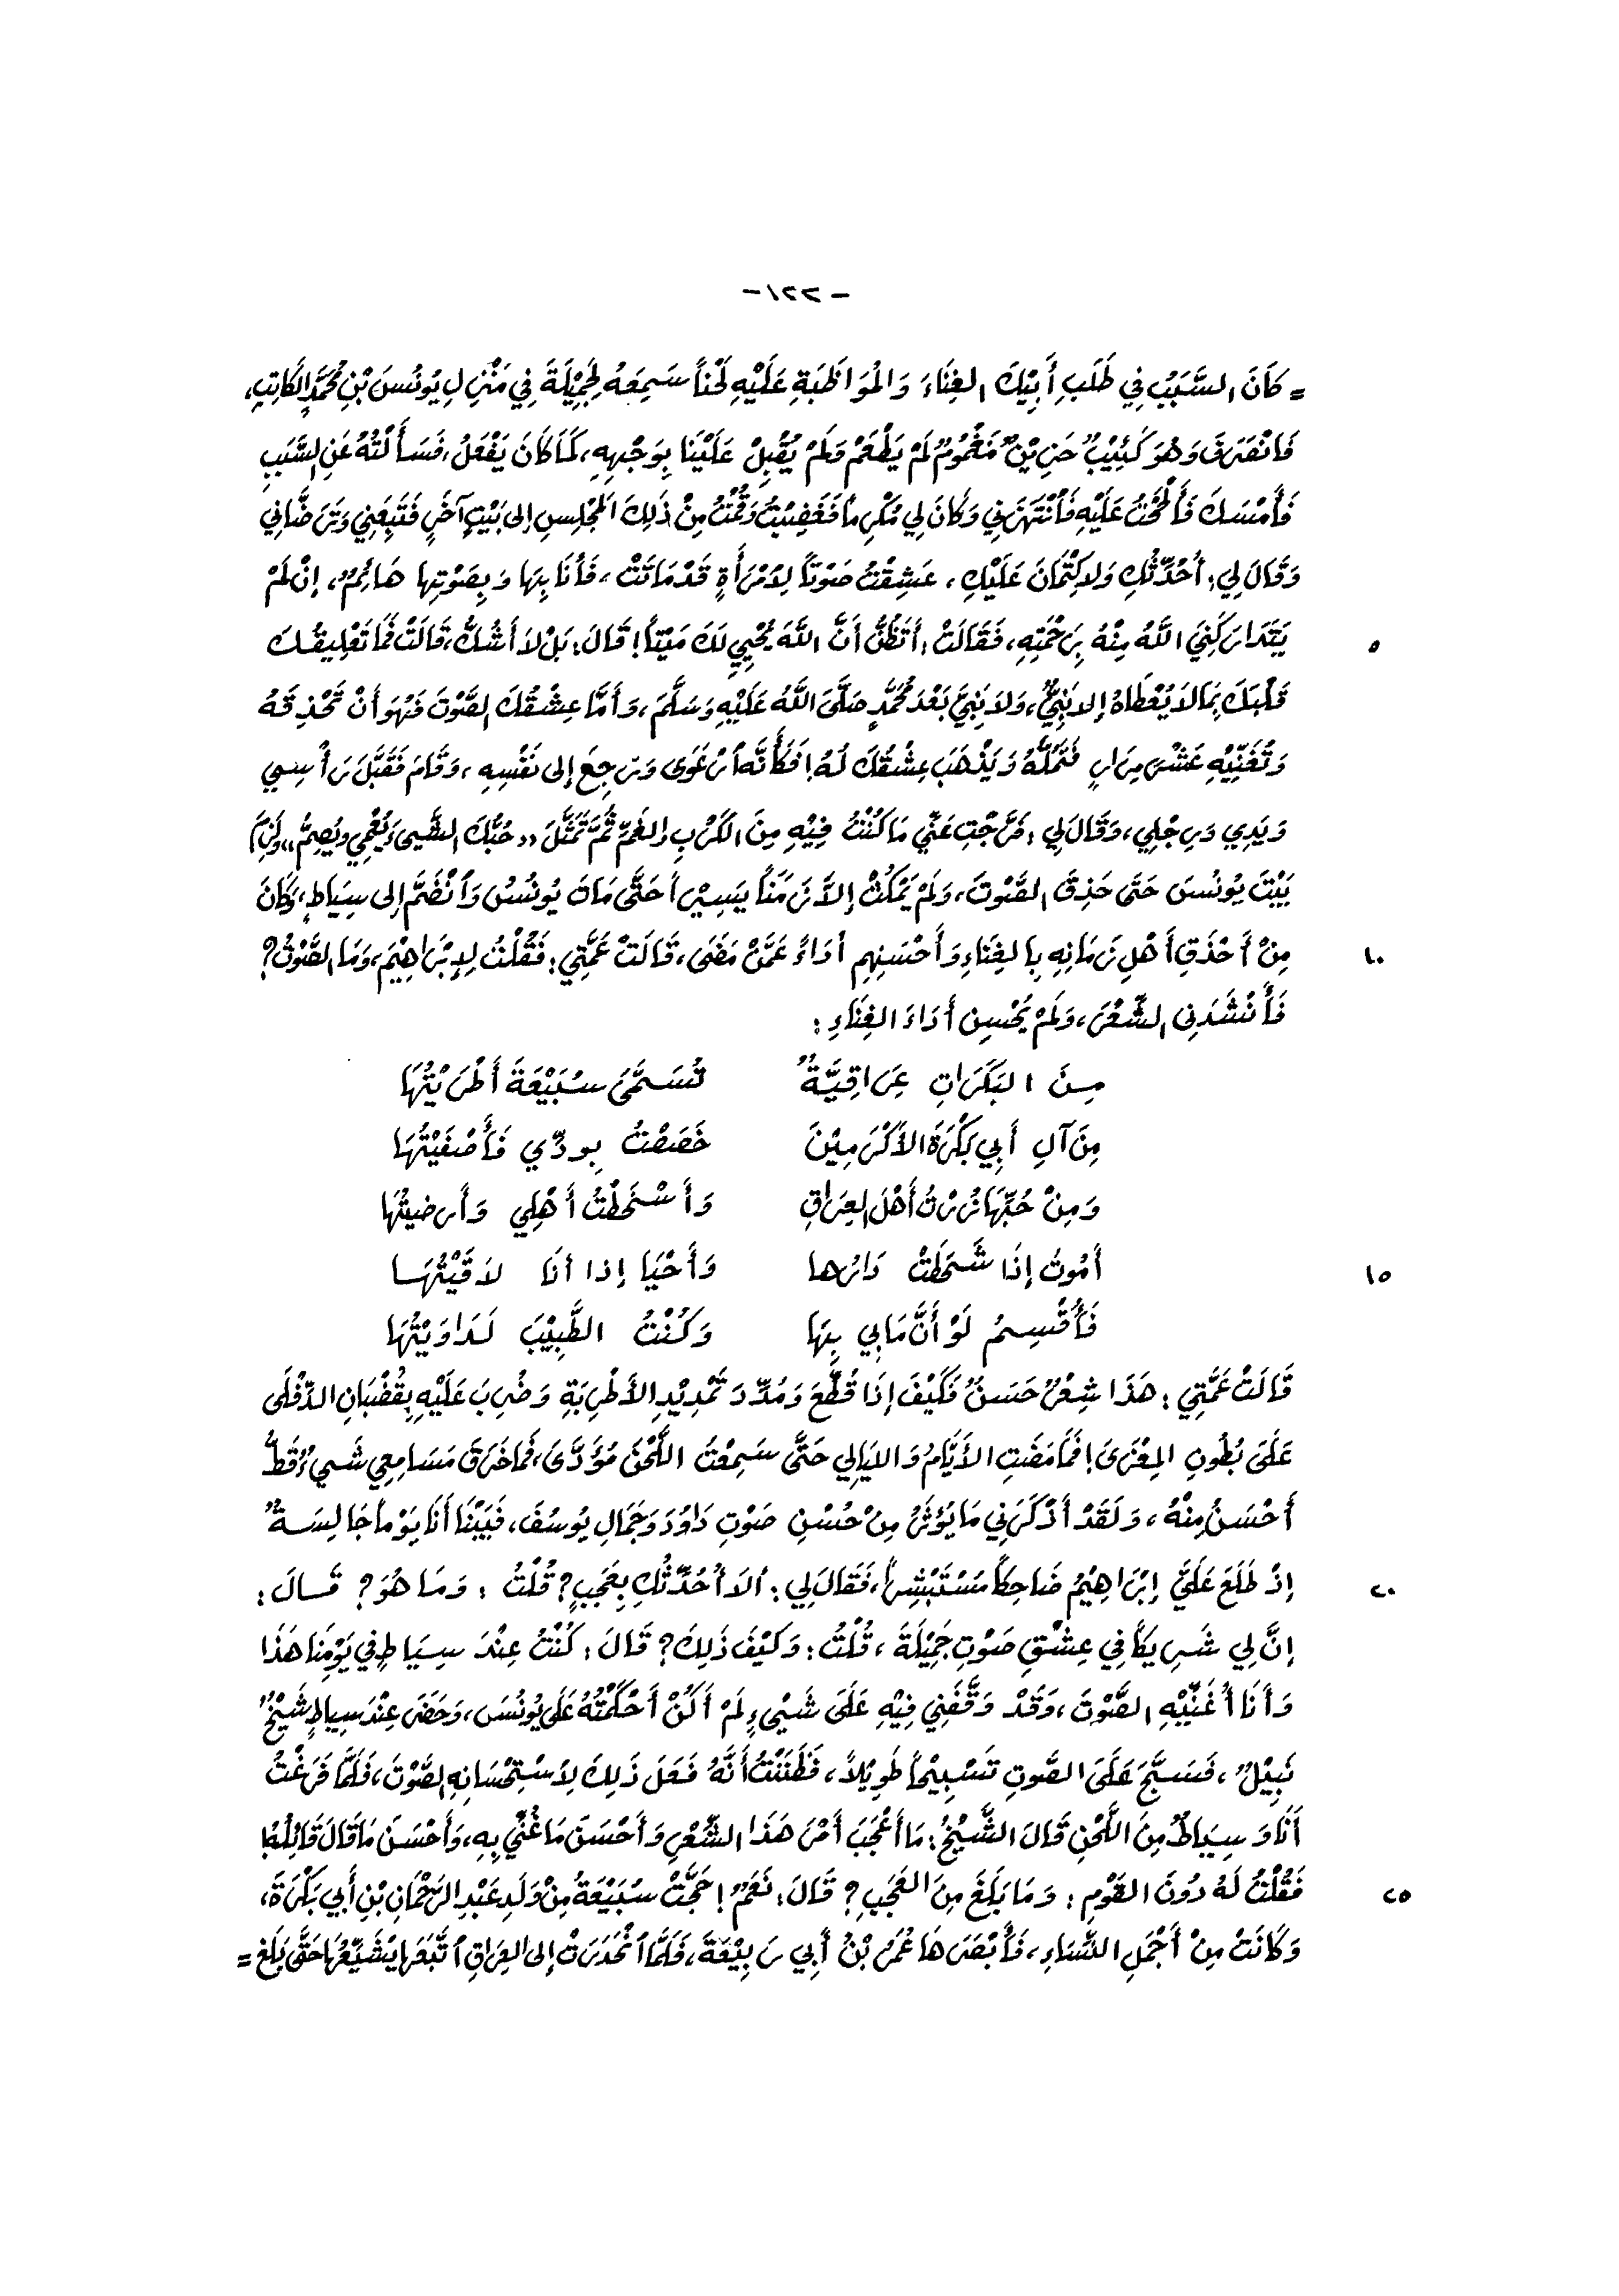 - ١٢٢ -
= كَانَ السَّبَبُ فِي طَلَبِ أَبِيْكَ الغِنَاءَ وَالمُوَاظَبَةِ عَلَيْهِ لَحْناً سَمِعَهُ لِجَمِيْلَةَ فِي مَنْزِلِ يُونُسَ بْنِ مُحَمَّدٍ الكَاتِبِ،
فَانْصَرَفَ وَهُوَ كَئِيْبٌ حَزِيْنٌ مَغْمُومٌ لَمْ يَطْعَمْ وَلَمْ يُقْبِلْ عَلَيْنَا بِوَجْهِهِ، كَمَا كَانَ يَفْعَلُ، فَسَأَلْتُهُ عَنِ السَّبَبِ
فَأَمْسَكَ فَأَلْحَحْتُ عَلَيْهِ فَانْتَهَرَنِي وَكَانَ لِي مُكْرِماً فَغَضِبْتُ وَقُمْتُ مِنْ ذَلِكَ المَجْلِسِ إلى بَيْتٍ آخَرٍ فَتَبِعَنِي وَتَرَضَّانِي
وَقَالَ لِي: أُحَدِّثُكِ وَلا كِتْمَانَ عَلَيْكِ، عَشِقْتُ صَوْتاً لِامْرَأَةٍ قَدْ مَاتَتْ، فَأَنَا بِهَا وَبِصَوْتِهَا هَائِمٌ، إنْ لَمْ
٥ يَتَدَارَكْنِيَ اللَّهُ مِنْهُ بِرَحْمَتِهِ، فَقَالَتْ: أَتَظُنُّ أَنَّ اللَّهَ يُحْيِي لَكَ مَيْتاً! قَالَ: بَلْ لاَ أَشُكُّ، قَالَتْ فَمَا تَعْلِيقُكَ
قَلْبَكَ بِمَا لاَ يُعْطَاهُ إلا نَبِيٌّ، وَلا نَبِيَّ بَعْدَ مُحَمَّدٍ صَلَّى اللَّهُ عَلَيْهِ وَسَلَّمَ، وَأَمَّا عِشْقُكَ الصَّوْتَ فَهُوَ أَنْ تَحْذِقَهُ
وَتُغَنِّيْهِ عَشْرَ مِرَارٍ فَتَمَلَّهُ وَيَذْهَبَ عِشْقُكَ لَهُ! فَكَأَنَّهُ ارْعَوَى وَرَجِعَ إلى نَفْسِهِ، وَقَامَ فَقَبَّلَ رَأْسِي
وَيَدِي وَرِجْلِي، وَقَالَ لِي: فَرَّجْتِ عَنِّي مَا كُنْتُ فِيْهِ مِنَ الكَرْبِ والغَمِّ ثُمَّ تَمَثَّلَ «حُبُّكَ الشَّيىءَ يُعْمِي ويُصِمُّ» وَلَزِمَ
بَيْتَ يُونُسَ حَتَّى حَذِقَ الصَّوْتَ، وَلَمْ يَمْكُثْ إلاَّ زَمَناً يَسِيْراً حَتَّى مَاتَ يُونُسُ وَانْضَمَّ إلى سِيَاطٍ، وَكَانَ
١٠ مِنْ أَحْذَقِ أَهْلِ زَمَانِهِ بِالغِنَاءِ وَأَحْسَنِهِم أدَاءً عَمَّنْ مَضَى، قَالَتْ عَمَّتِي: فَقُلْتُ لِإبْرَاهِيْمَ، وَمَا الصَّوْتُ؟
فَأَنْشَدَنِي الشِّعْرَ، وَلَمْ يُحْسِنِ أَدَاءَ الغِنَاءِ:
مِنَ البَكَرَاتِ عِرَاقِيَّةٌ تُسَمَّى سُبَيْعَةَ أَطْرَيْتُهَا
مِنَ آلِ أَبِي بَكْرَةَ الأَكْرَمِيْنَ خَصَصْتُ بِودِّي فَأَصْفَيْتُهَا
وَمِنْ حُبِّهَا زُرْتُ أَهْلَ العِرَاقِ وَأَسْخَطْتُ أَهْلِي وَأَرضَيْتُهَا
١٥ أَمُوتُ إذَا شَحَطَتْ دَارُها وَأَحْيَا إذا أنَا لاَقَيْتُهَا
فَأُقْسِمُ لَوْ أَنَّ مَا بِي بِهَا وَكُنْتُ الطَّبِيْبَ لَدَاوَيْتُهَا
قَالَتْ عَمَّتِي: هَذَا شِعْرٌ حَسَنٌ فَكَيْفَ إذَا قُطِّعَ وَمُدِّدَ تَمْدِيْدِ الأَطْرِبَةِ وَضُرِبَ عَلَيْهِ بِقُضْبَانِ الدِّفْلَى
عَلَى بُطُونِ المِعْزَى! فَمَا مَضَتِ الأَيَّامُ وَاللَيَالِي حَتَّى سَمِعْتُ اللَّحْنَ مُؤَدَّىَ، فَمَا خَرَقَ مَسَامِعِي شَيءٌ قَطُّ
أَحْسَنُ مِنْهُ، وَلَقَدْ أَذْكَرَنِي مَا يُؤثَرُ مِنْ حُسْنِ صَوْتِ دَاوُدَ وَجَمَالِ يُوسُفَ، فَبَيْنَا أَنَا يَوْماً جَالِسَةٌ
٢٠ إذْ طَلَعَ عَلَيَّ إبْرَاهِيْمُ ضَاحِكاً مُسْتَبْشِراً، فَقَالَ لِي: أَلاَ أُحَدِّثُكِ بِعَجَبٍ؟ قُلْتُ: وَمَا هُوَ؟ قَالَ:
إنَّ لِي شَرِيكاً فِي عِشْقِ صَوْتِ جَمِيْلَةَ، قُلْتُ: وَكَيْفَ ذَلِكَ؟ قَالَ: كُنْتُ عِنْدَ سِيَاطٍ فِي يَوْمِنَا هَذَا
وَأَنَا أُغَنِّيْهِ الصَّوْتَ، وَقَدْ وَقَّفَنِي فِيْهِ عَلَى شَيْيءٍ لَمْ أَكُنْ أَحْكَمْتُهُ عَلَى يُونُسَ، وَحَضَرَ عِنْدَ سِيَاطٍ شَيْخٌ
نَبِيْلٌ، فَسَبَّحَ عَلَى الصَّوتِ تَسْبِيْحاً طَوِيْلاً، فَظَنَنْتُ أَنَّهُ فَعَلَ ذَلِكَ لِاسْتِحْسَانِهِ الصَّوْتَ، فَلَمَّا فَرَغْتُ
أَنَا وَ سِيَاطٌ مِنَ اللَّحْنِ قَالَ الشَّيْخُ: مَا أَعْجَبَ أَمْرَ هَذَا الشِّعْرِ وَأَحْسَنَ مَا غُنِّيَ بِهِ، وَأَحْسَنَ مَا قَالَ قَائِلُهُ!
٢٥ فَقُلْتُ لَهُ دُونَ القَوْمِ: وَمَا بَلَغَ مِنَ العَجَبِ؟ قَالَ: نَعَمْ! حَجَّتْ سُبَيْعَةُ مِنْ وَلَدِ عَبْدِ الرَّحْمَانِ بْنِ أَبِي بَكْرَةَ،
وَكَانَتْ مِنْ أَجْمَلِ النِّسَاءِ، فَأَبْصَرَهَا عُمَرُ بْنُ أَبِي رَبِيْعَةَ، فَلَمَّا انْحَدَرَتْ إلى العِرَاقِ اتَّبَعَهَا يُشَيِّعُهَا حَتَّى بَلَغَ =